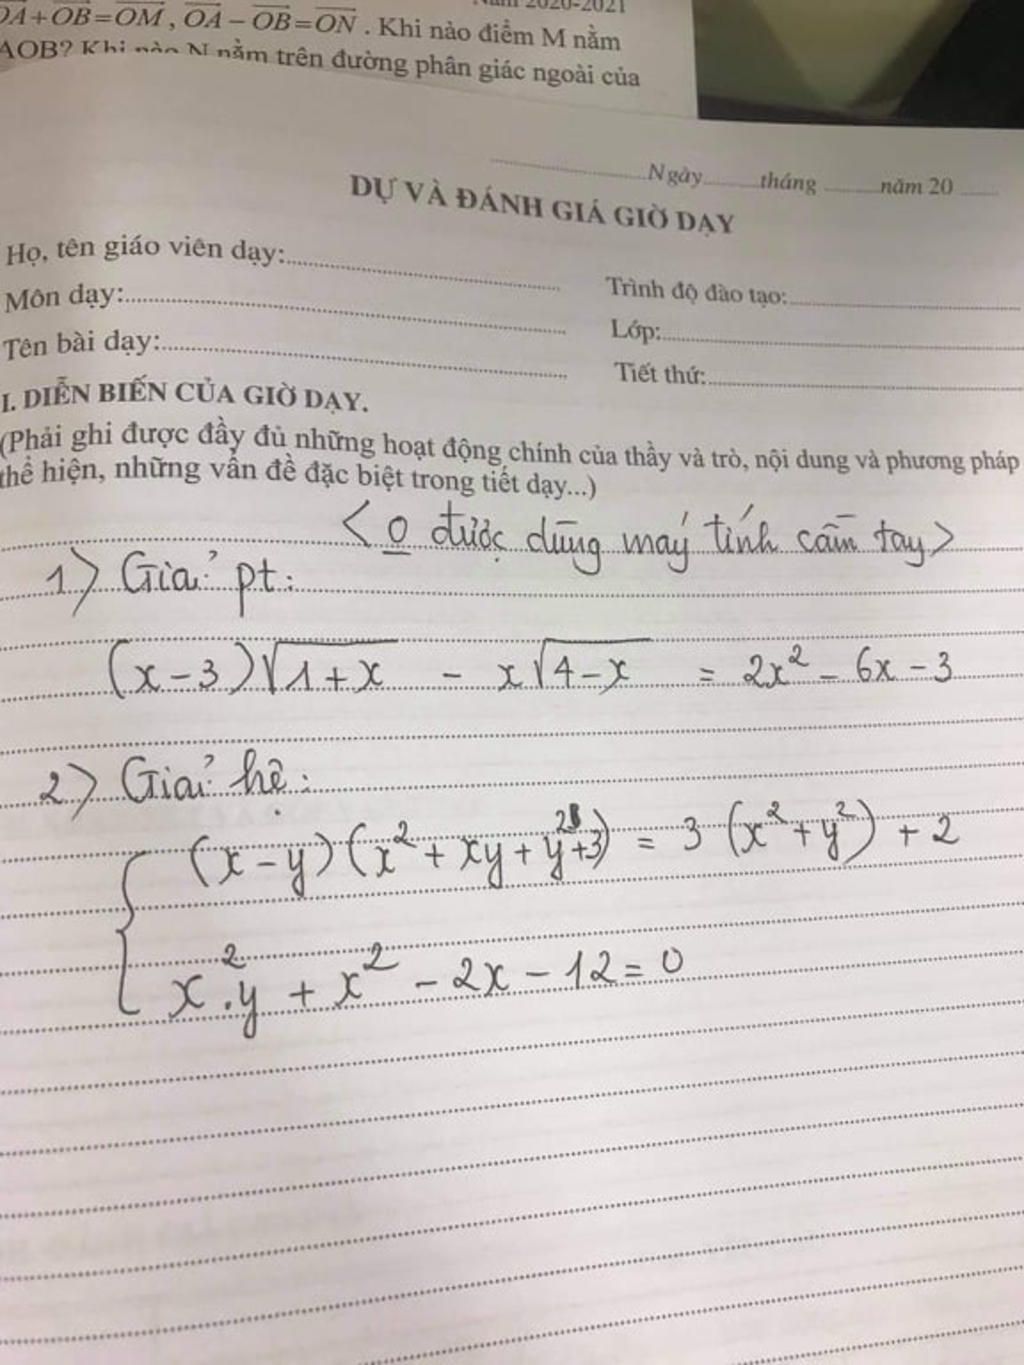 OA+OB=OM, OA−OB=ON. Khi nào điểm M nằm
AOB? Khi nào N nằm trên đường phân giác ngoài của
Ngày tháng năm 20
DỰ VÀ ĐÁNH GIÁ GIỜ DẠY
Họ, tên giáo viên dạy:
Trình độ đào tạo:
Môn dạy:
Lớp:
Tên bài dạy:
Tiết thứ:
I. DIỄN BIẾN CỦA GIỜ DẠY.
(Phải ghi được đầy đủ những hoạt động chính của thầy và trò, nội dung và phương pháp
thể hiện, những vấn đề đặc biệt trong tiết dạy...)
<0 được dùng máy tính cầm tay>
1) Giải pt:
(x−3)√1+x − x√4−x = 2x² − 6x − 3
2) Giải hệ:
(x−y)(x²+xy+y²+3) = 3(x²+y²)+2
x².y + x² − 2x − 12 = 0